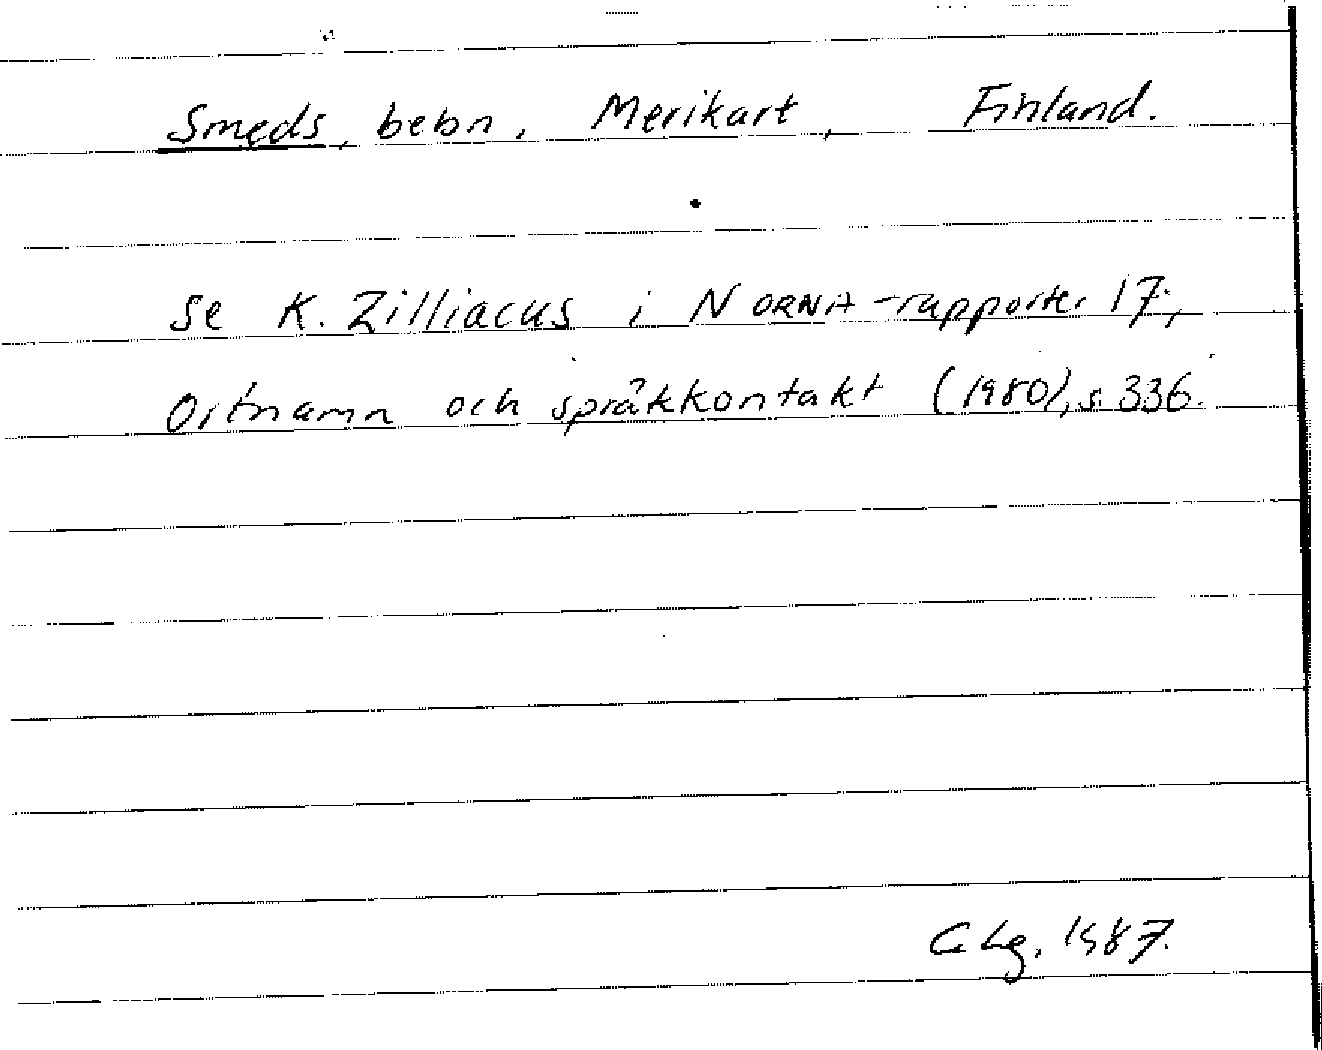 Smeds, bebn, Merikart, Finland.
Se K. Zilliacus i NORNA-rapporter 17,
Ortnamn och språkkontakt (1980), s. 336.
C Lg. 1987.